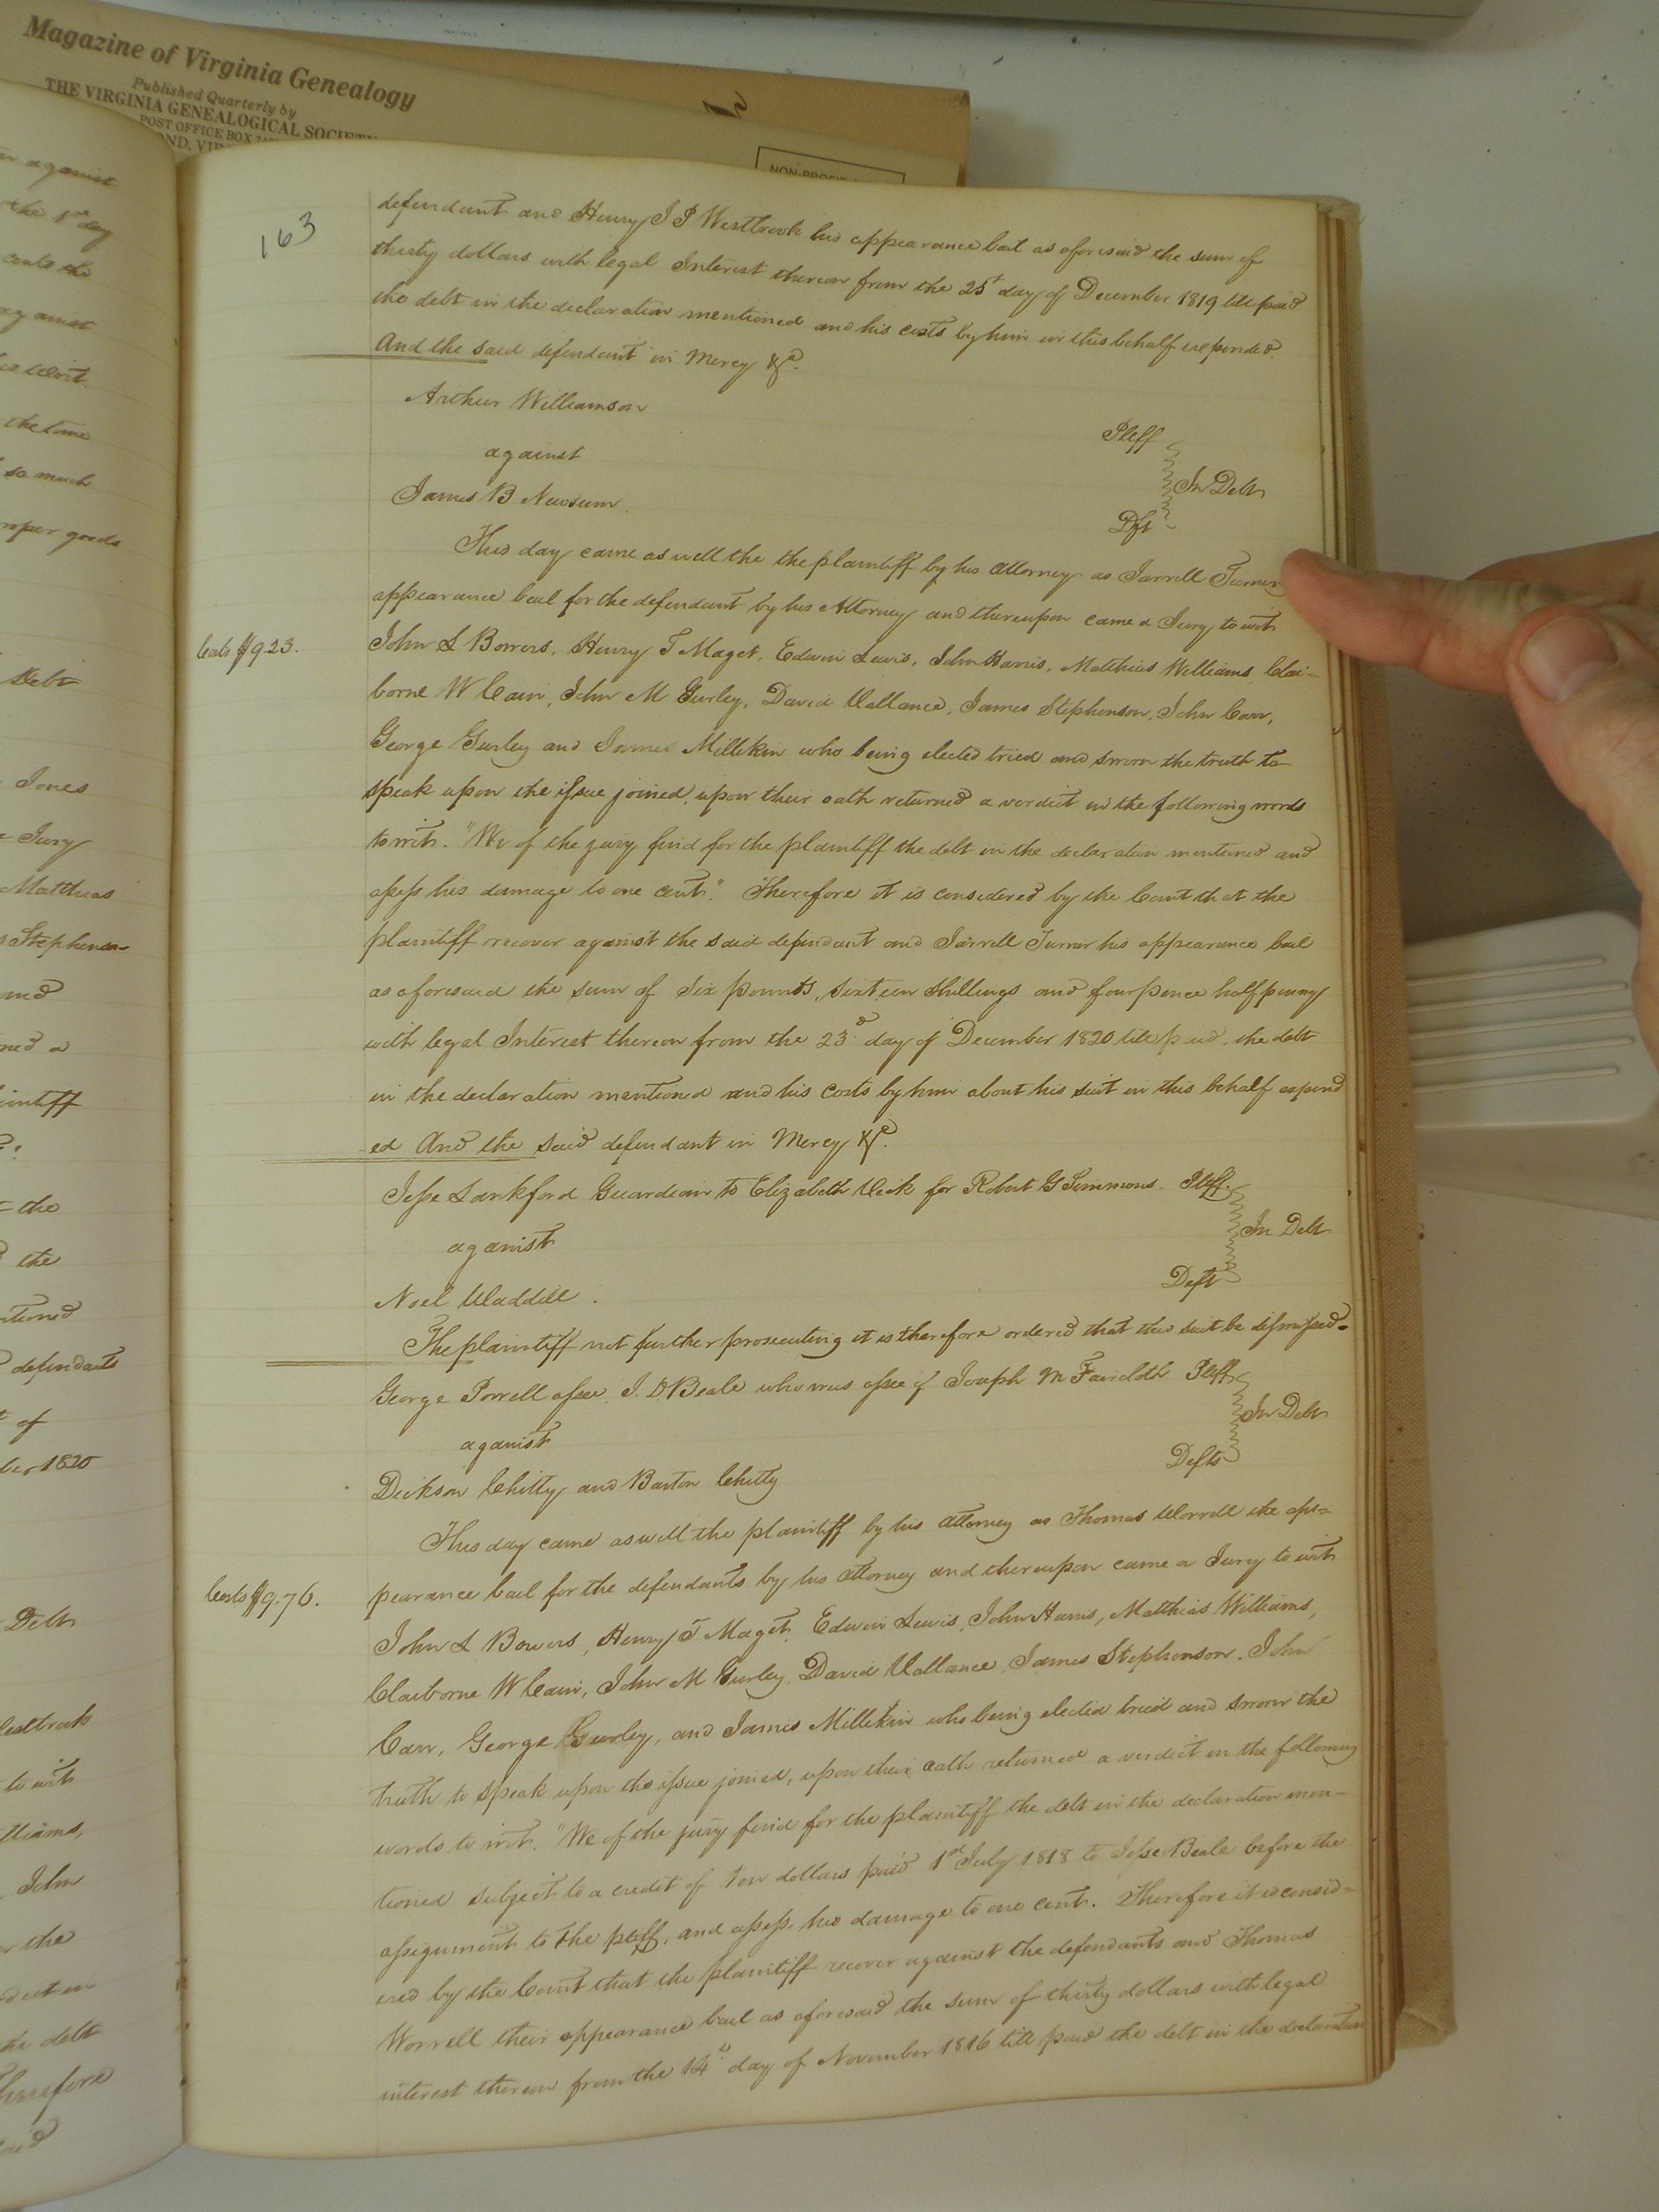 Magazine of Virginia Genealogy
Published Quarterly by
THE VIRGINIA GENEALOGICAL SOCIETY
POST OFFICE BOX
NON-PROFIT
against
the 1st day
cents the
against
the time
so much
proper goods
Debt
Jones
Jury
Matthias
Stephenson
and
the
the
defendants
of
1820
Debt
to wit
John
the
the debt
Therefore
163
defendant and Henry J P Westbrook his appearance bail as aforesaid the sum of
thirty dollars with legal Interest thereon from the 25t day of December 1819 till paid
the debt in the declaration mentioned and his costs by him in this behalf expended.
And the said defendant in Mercy &c.
Arthur Williamson Pltff
against In Debt
James B Newsum Dft
This day came as well the the plaintiff by his attorney as Jarrell Turner
appearance bail for the defendant by his Attorney and thereupon came a Jury to wit
Costs $9.23.
John L Bowers, Henry T Maget, Edwin Lewis, John Harris, Matthias Williams, Clai-
borne W Cain, John M Gurley, David Vallance, James Stephenson, John Carr,
George Gurley and James Millikin who being elected tried and sworn the truth to
speak upon the issue joined, upon their oath returned a verdict in the following words
towit. "We of the jury find for the plaintiff the debt in the declaration mentioned and
assess his damage to one cent." Therefore it is considered by the Court that the
plaintiff recover against the said defendant and Jarrell Turner his appearance bail
as aforesaid the sum of Six pounds, sixteen Shillings and four pence half penny
with legal Interest thereon from the 23d day of December 1820 till paid, the debt
in the declaration mentioned and his costs by him about his suit in this behalf expend
ed And the said defendant in Mercy &c.
Jesse Lankford Guardian to Elizabeth Vick for Robert G Simmons. Pltff.
against In Debt
Noel Waddill. Deft
The plaintiff not further prosecuting it is therefore ordered that this suit be dismissed-
George Powell assee. J. D. Beale who was assee of Joseph M Faircloth Pltff
against In Debt
Dickson Chitty and Barton Chitty Defts
This day came as well the plaintiff by his attorney as Thomas Worrell the ap=
Costs $9.76.
pearance bail for the defendants by his attorney and thereupon came a Jury to wit
John L Bowers, Henry T Maget, Edwin Lewis, John Harris, Matthias Williams,
Claiborne W Cain, John M Gurley, David Vallance, James Stephenson, John
Carr, George Gurley, and James Millikin who being elected tried and sworn the
truth to speak upon the issue joined, upon their oath returned a verdict in the following
words to wit. "We of the jury find for the plaintiff the debt in the declaration men-
tioned subject to a credit of ten dollars paid 1st July 1818 to Jesse Beale before the
assignment to the pltff, and assess his damage to one cent. Therefore it is consid=
ered by the Court that the plaintiff recover against the defendants and Thomas
Worrell their appearance bail as aforesaid the sum of thirty dollars with legal
interest thereon from the 14th day of November 1816 till paid the debt in the declaration